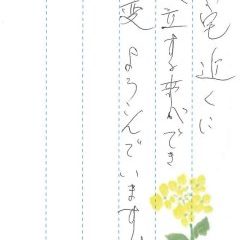 宅近くに
立する事ができ
変よろこんでいます。